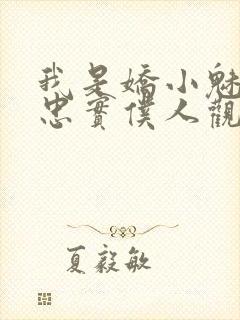 我是嬌小魅
忠實僕人觀
夏毅敏